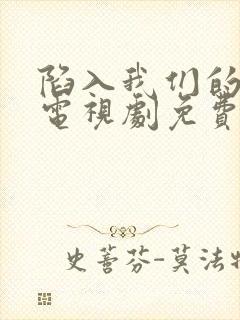 陷入我们的
電視劇免費
史蒈芬-莫法特